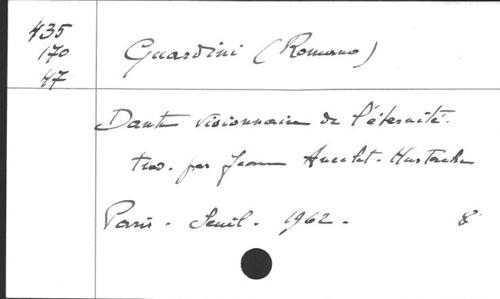 435
170
47
Guardini (Romano)
Dante visionnaire de l'éternité.
trad. par Jeanne Ancelet-Hustache
Paris - Seuil - 1962 - 8